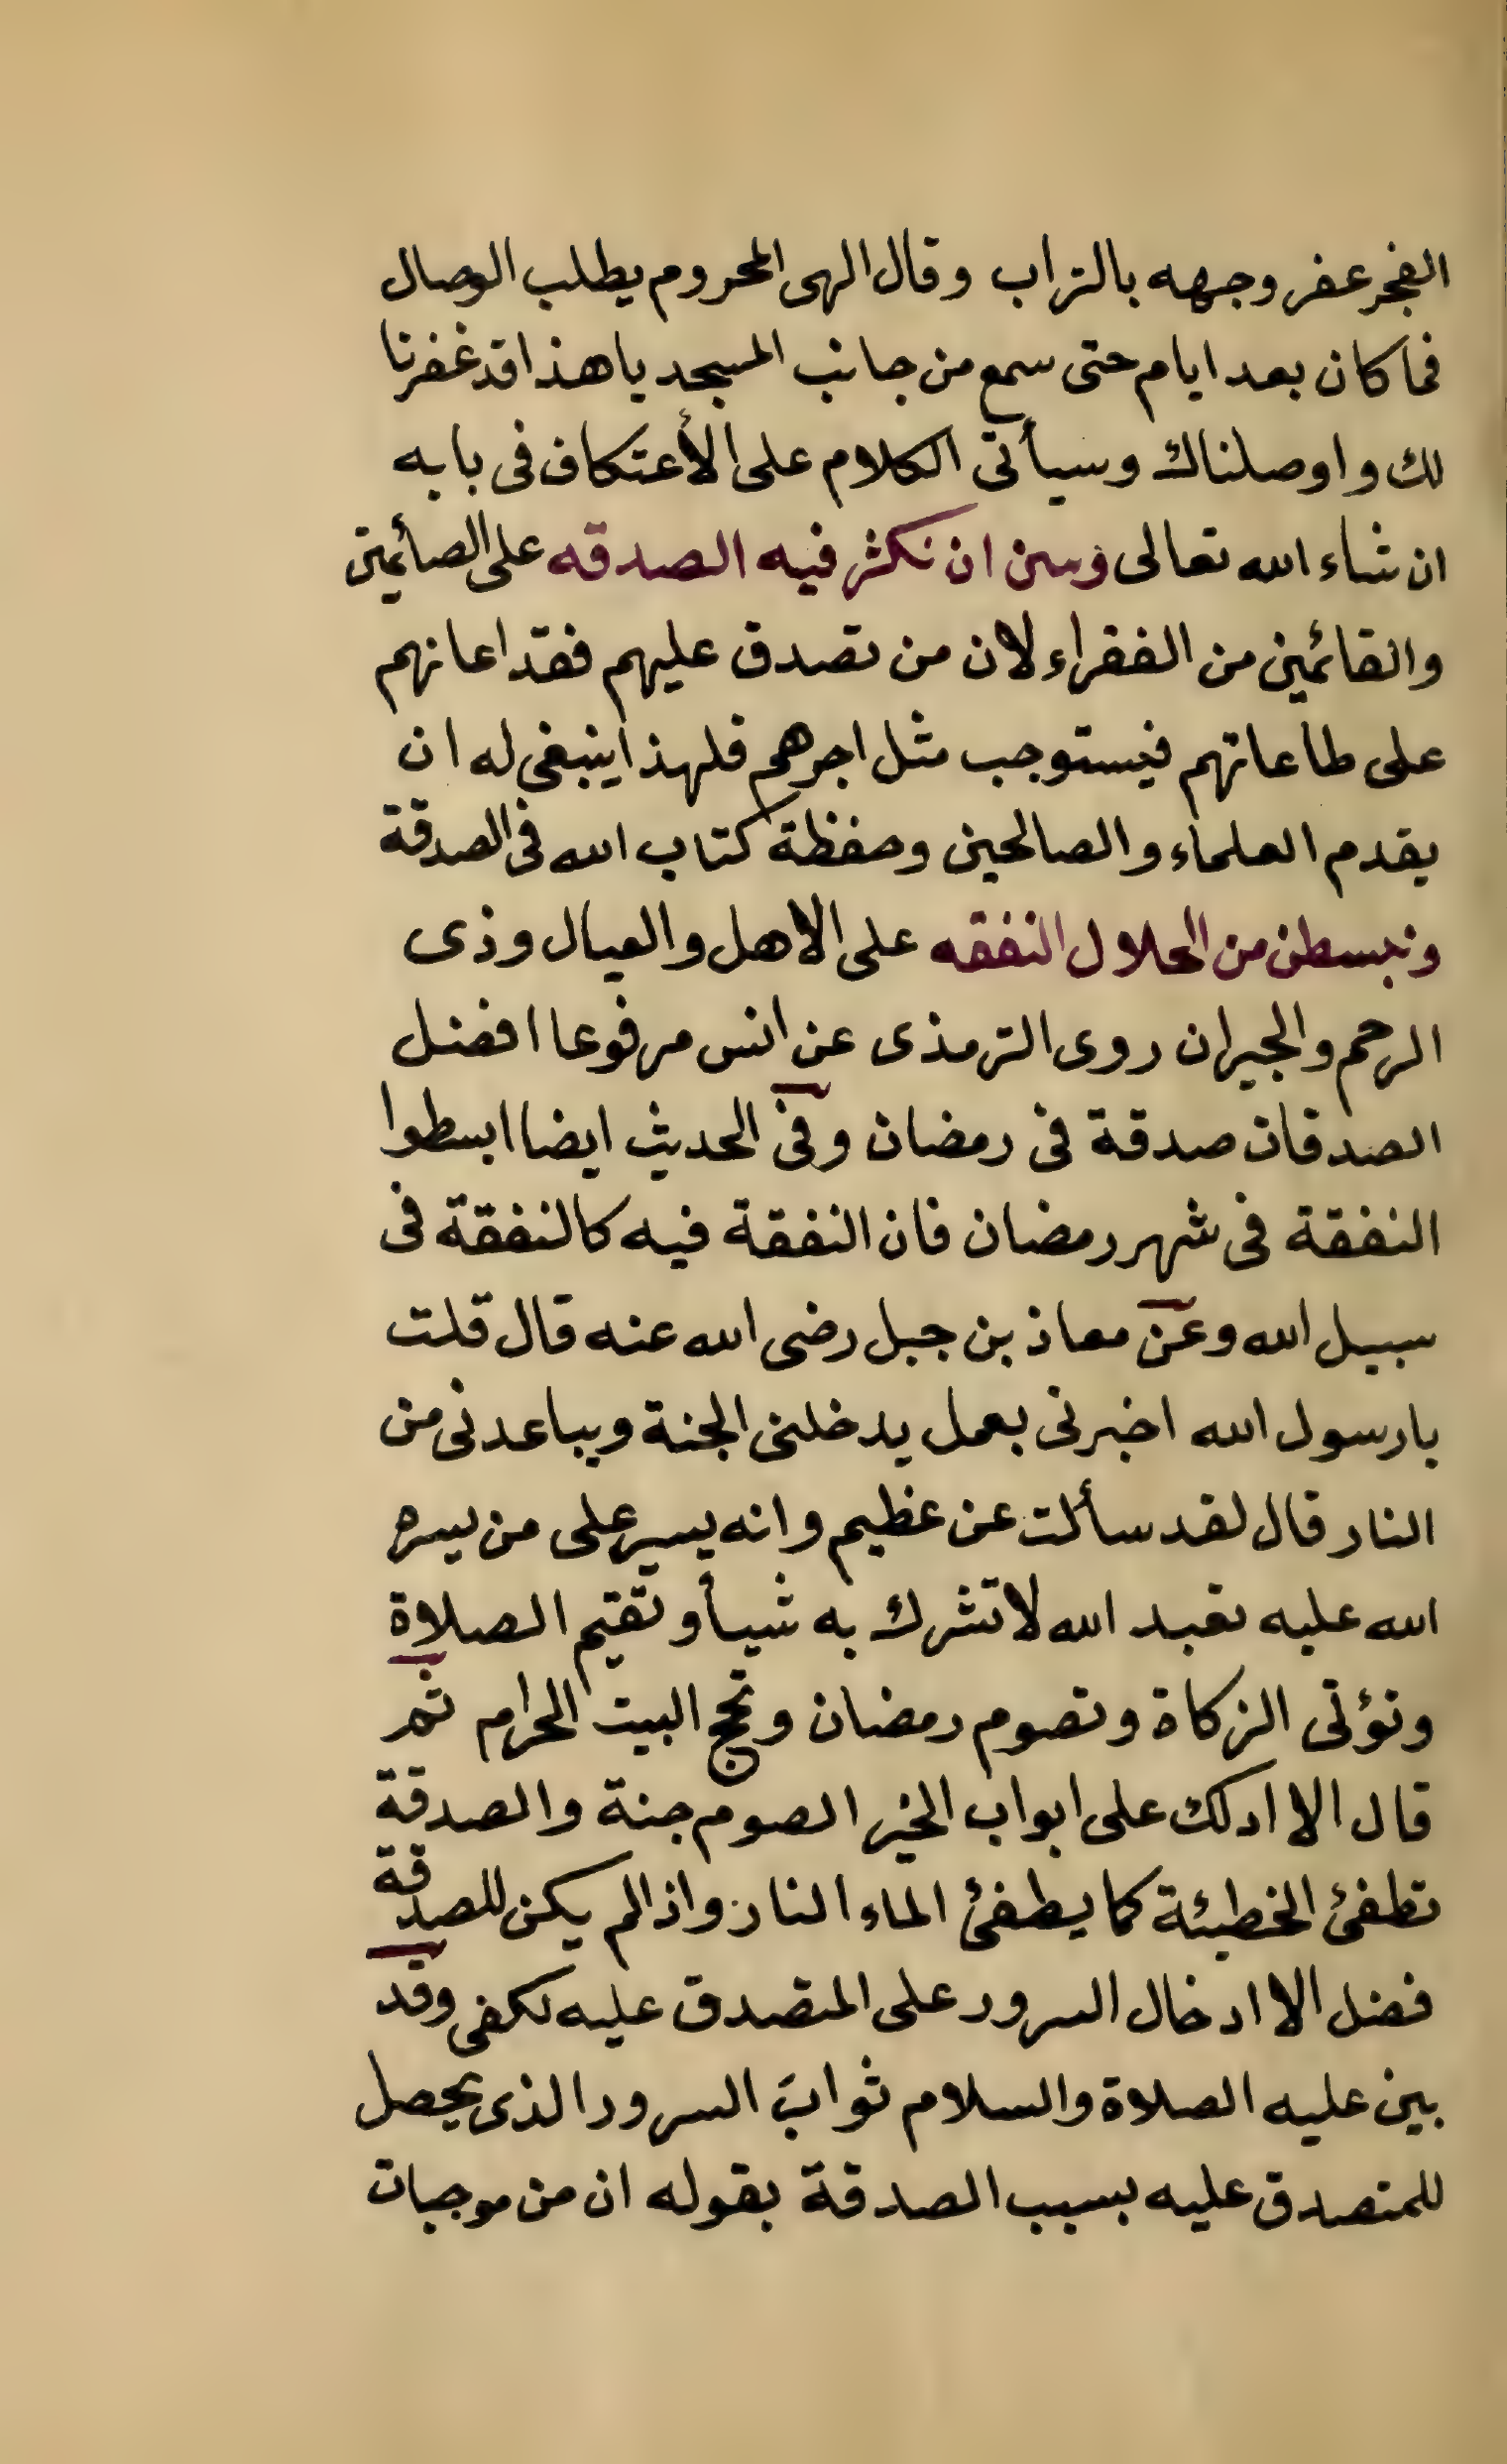 الفجر عفر وجهه بالتراب وقال الهى المحروم يطلب الوصال
فما كان بعد ايام حتى سمع من جانب المسجد يا هذا قد غفرنا
لك واوصلناك وسيأتى الكلام على الأعتكاف فى بابه
ان شاء الله تعالى وسن ان نكثر فيه الصدقه على الصائمين
والقائمين من الفقراء لان من تصدق عليهم فقد اعانهم
على طاعاتهم فيستوجب مثل اجرهم فلهذا ينبغى له ان
يقدم العلماء والصالحين وحفظة كتاب الله فى الصدقة
ونبسطن من الحلال النفقه على الاهل والعيال وذى
الرحم والجيران روى الترمذى عن انس مرفوعا افضل
الصدقات صدقة فى رمضان وفى الحديث ايضا ابسطوا
النفقة فى شهر رمضان فان النفقة فيه كالنفقة فى
سبيل الله وعن معاذ بن جبل رضى الله عنه قال قلت
يا رسول الله اخبرنى بعمل يدخلنى الجنة ويباعدنى من
النار قال لقد سألت عن عظيم وانه يسير على من يسره
الله عليه تعبد الله لا تشرك به شيأ وتقيم الصلاة
وتؤتى الزكاة وتصوم رمضان وتحج البيت الحرام ثم
قال الا ادلك على ابواب الخير الصوم جنة والصدقة
تطفئ الخطيئة كما يطفئ الماء النار واذا لم يكن للصدقة
فضل الا ادخال السرور على المتصدق عليه لكفى وقد
بين عليه الصلاة والسلام ثوابَ السرور الذى يحصل
للمتصدق عليه بسبب الصدقة بقوله ان من موجبات